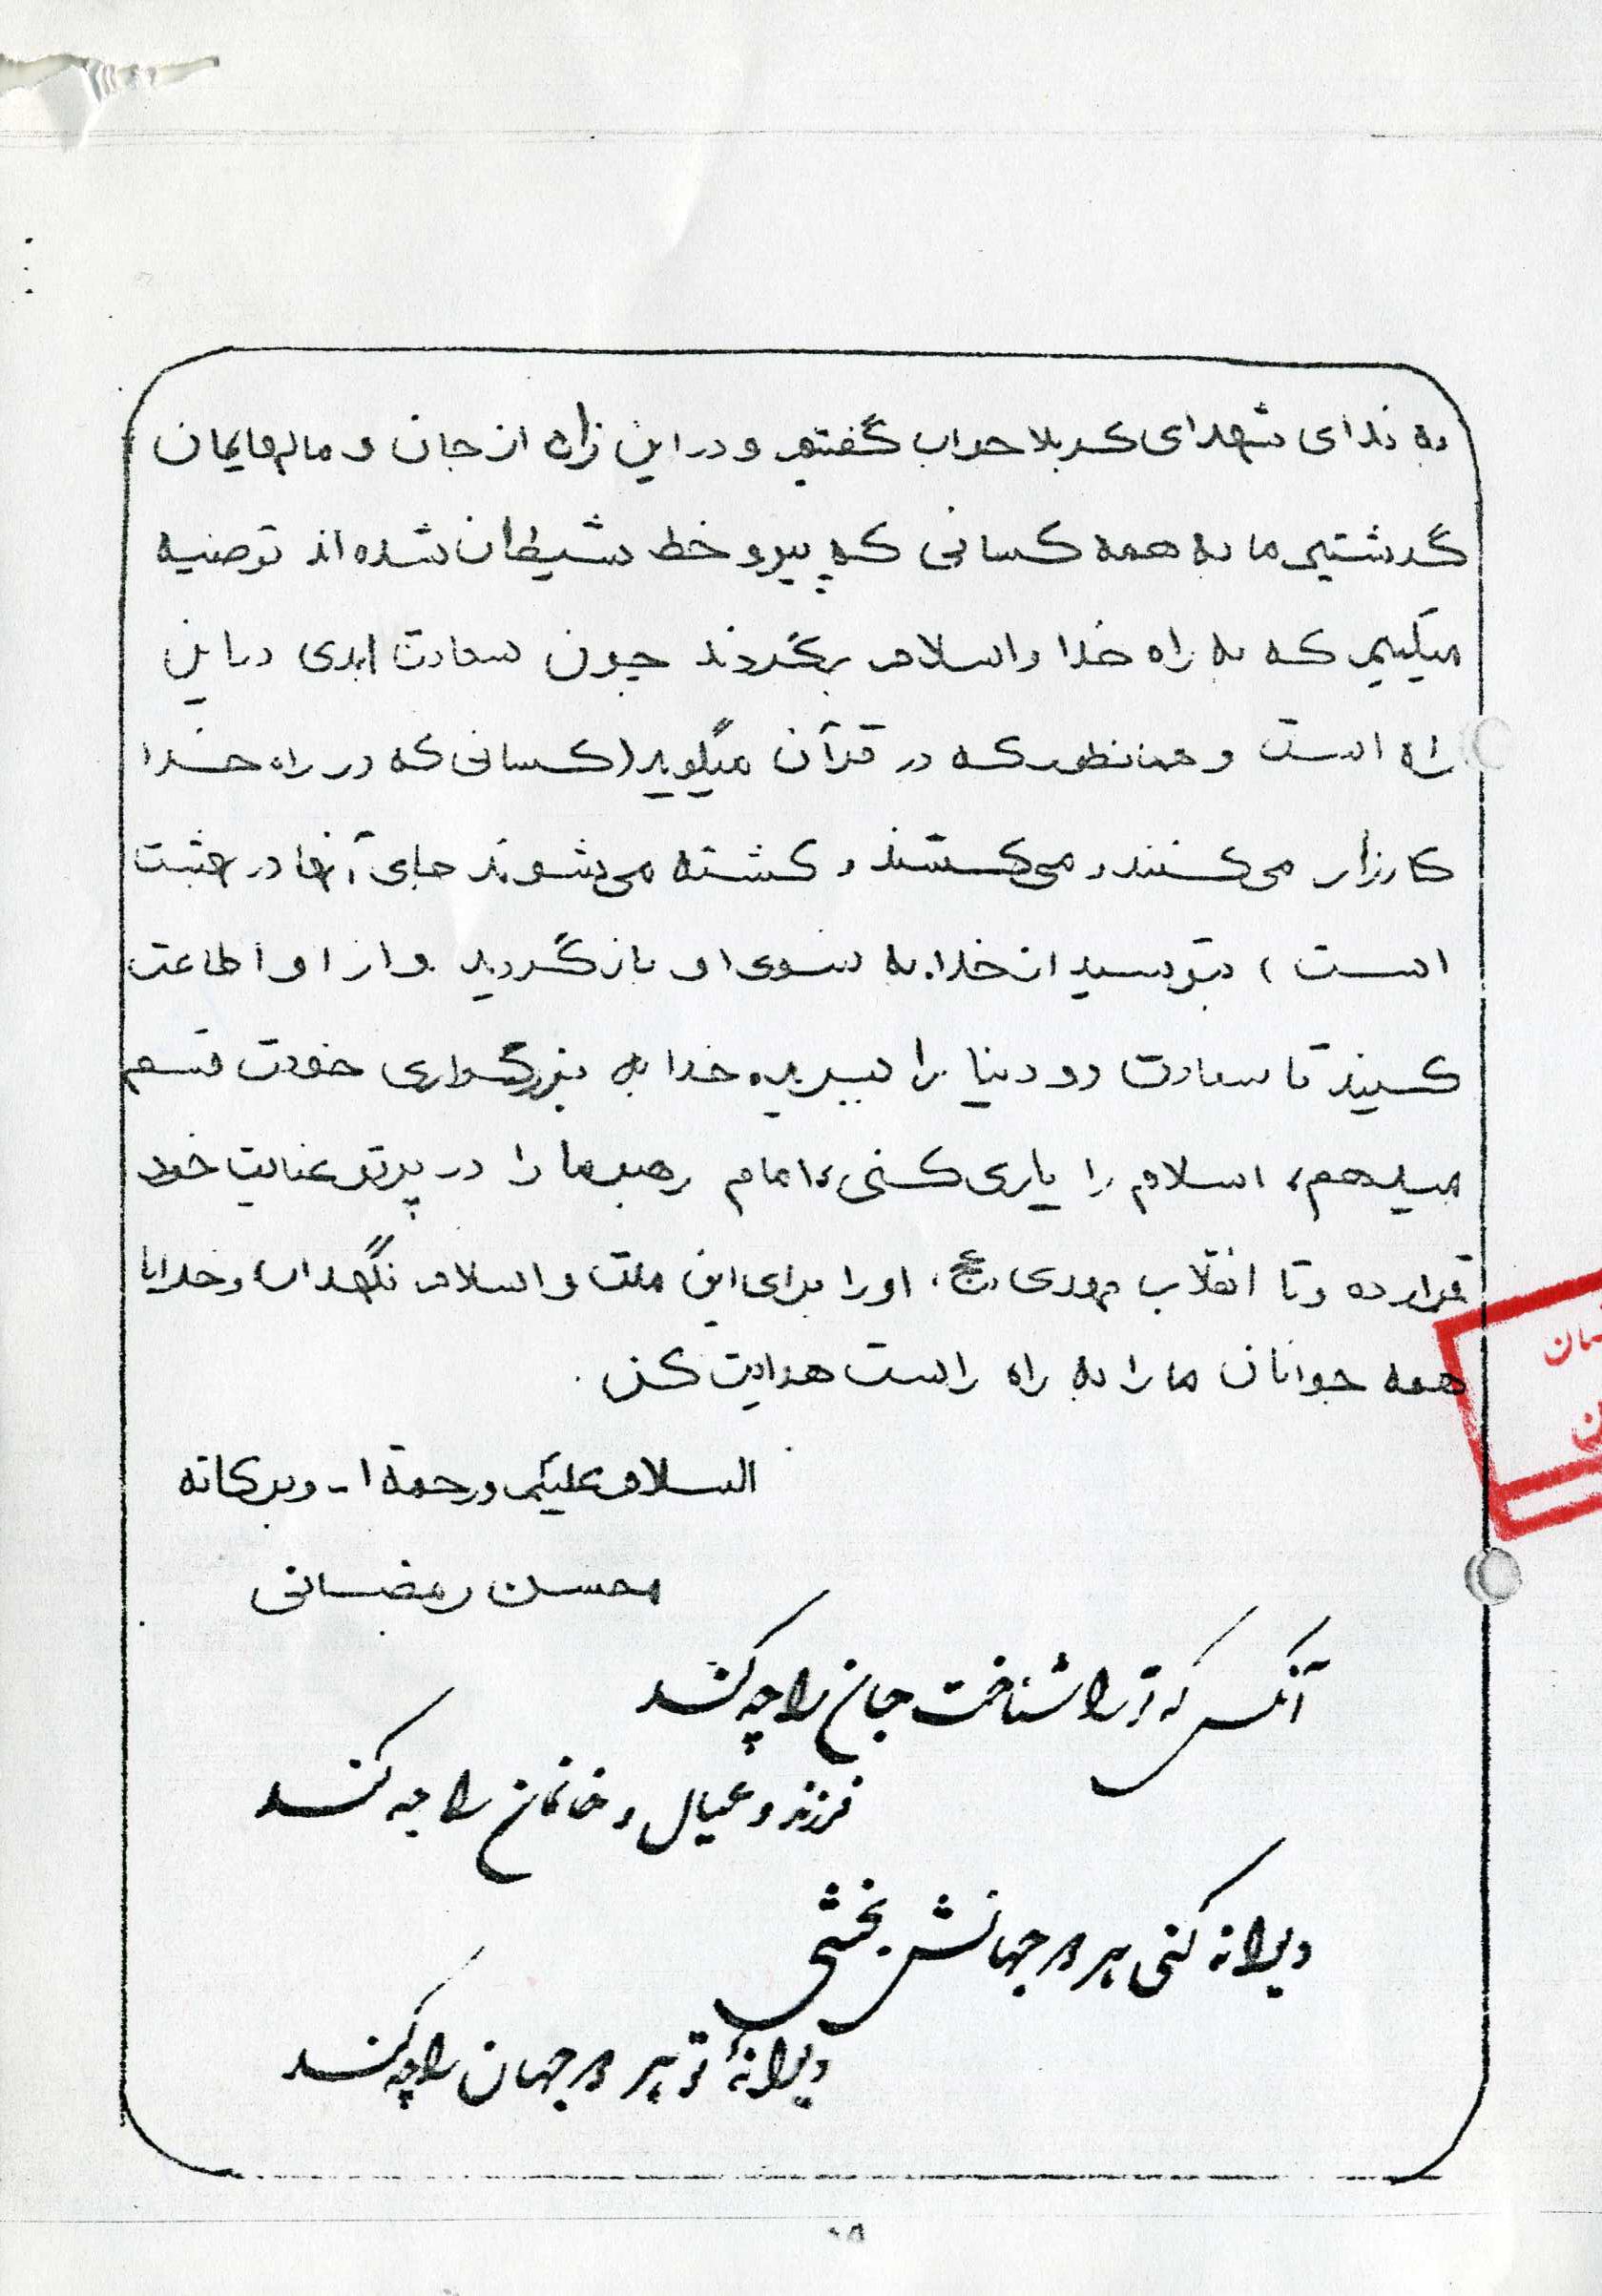 به ندای شهدای کربلا جواب گفتیم و در این راه از جان و مالهایمان
گذشتیم ما به همه کسانی که پیرو خط شیطان شده اند توصیه
میکنیم که به راه خدا و اسلام برگردند چون سعادت ابدی در این
راه است و همانطور که در قرآن میگوید (کسانی که در راه خدا
کارزار می کنند و می کشند و کشته می شوند جای آنها در بهشت
است) بترسید از خدا، به سوی او بازگردید و از او اطاعت
کنید تا سعادت دو دنیا را ببرید، خدا به بزرگواری خودت قسم
میدهم، اسلام را یاری کنی، امام رهبر ما را در پرتو عنایت خود
قرار ده و تا انقلاب مهدی (عج) او را برای این ملت و اسلام نگهدار، و خدایا
همه جوانان ما را به راه راست هدایت کن.
السلام علیکم و رحمة ا - و برکاته
محسن رمضانی
آنکس که ترا شناخت جان را چه کند
فرزند و عیال و خانمان را چه کند
دیوانه کنی هر دو جهانش بخشی
دیوانهٔ تو هر دو جهان را چه کند